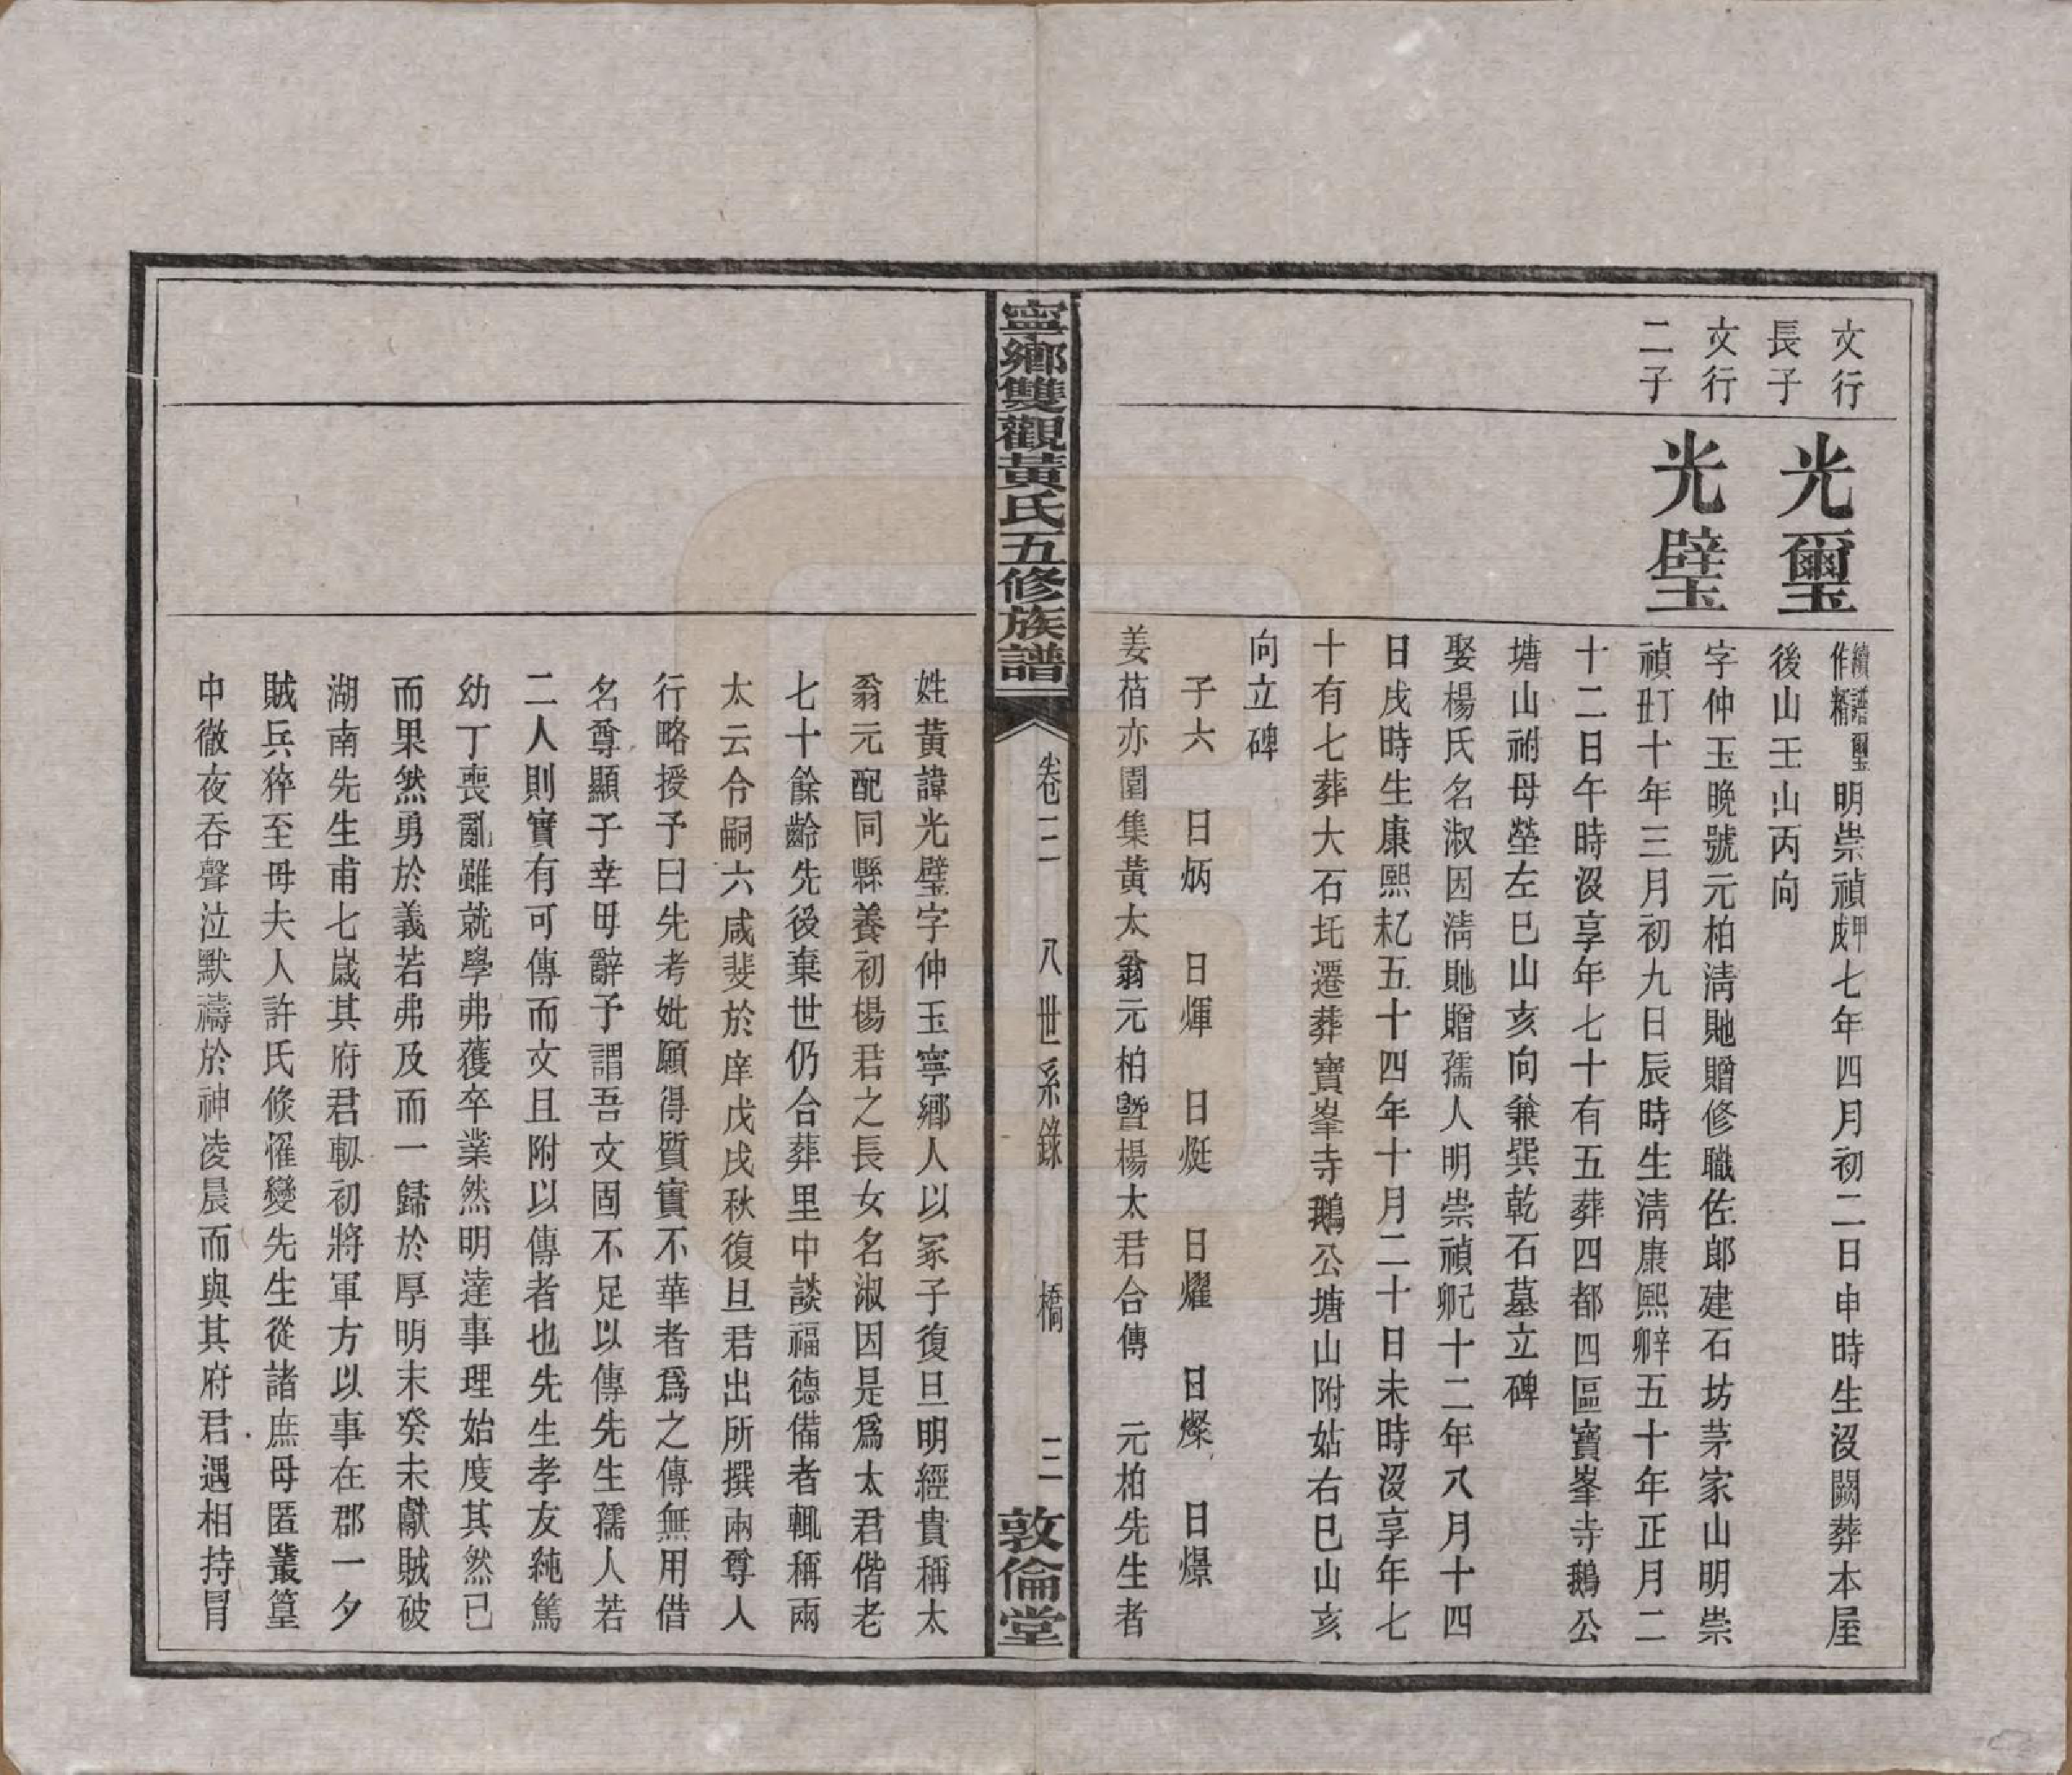 文行
長子
光璽
續譜璽
作精
明崇禎甲戌七年四月初二日申時生沒闕葬本屋
後山壬山丙向
文行
二子
光璧
字仲玉晚號元柏淸貤贈修職佐郎建石坊茅家山明崇
禎丁丑十年三月初九日辰時生淸康熙辛卯五十年正月二
十二日午時沒享年七十有五葬四都四區寶峯寺鵝公
塘山祔母塋左巳山亥向兼巽乾石墓立碑
娶楊氏名淑因淸貤贈孺人明崇禎己卯十二年八月十四
日戌時生康熙乙未五十四年十月二十日未時沒享年七
十有七葬大石坵遷葬寶峯寺鵝公塘山附姑右巳山亥
向立碑
子六 日炳 日煇 日烶 日燿 日燦 日燝
姜萿亦園集黃太翁元柏曁楊太君合傳 元柏先生者
寧鄉雙觀黃氏五修族譜
卷三 八世系錄 橋 三
敦倫堂
姓黃諱光璧字仲玉寧鄉人以冢子復旦明經貴稱太
翁元配同縣養初楊君之長女名淑因是爲太君偕老
七十餘齡先後棄世仍合葬里中談福德備者輒稱兩
太云令嗣六咸斐於庠戊戌秋復旦君出所撰兩尊人
行略授予曰先考妣願得質實不華者爲之傳無用借
名尊顯子幸毋辭予謂吾文固不足以傳先生孺人若
二人則實有可傳而文且附以傳者也先生孝友純篤
幼丁喪亂雖就學弗獲卒業然明達事理始度其然已
而果然勇於義若弗及而一歸於厚明末癸未獻賊破
湖南先生甫七歲其府君軔初將軍方以事在郡一夕
賊兵猝至母夫人許氏倐罹變先生從諸庶母匿叢篁
中徹夜吞聲泣默禱於神凌晨而與其府君遇相持冐